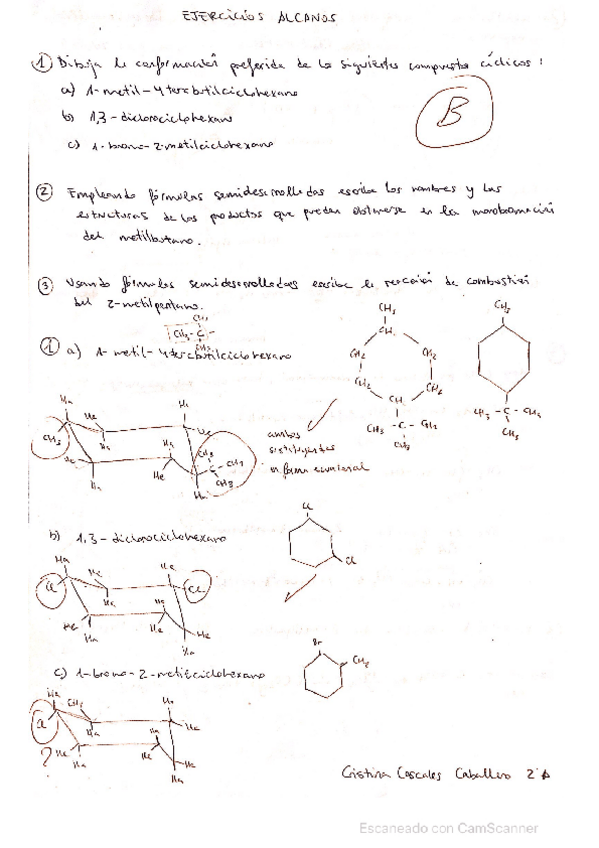 EJERCICIOS ALCANOS
① Dibuja la conformación preferida de los siguientes compuestos cíclicos:
a) 1-metil-4terbutilciclohexano
b) 1,3-diclorociclohexano
c) 1-bromo-2metilciclohexano
B
② Empleando fórmulas semidesarrolladas escribe los nombres y las
estructuras de los productos que pueden obtenerse en la monobromación
del metilbutano.
③ Usando fórmulas semidesarrolladas escribe la reacción de combustión
del 2-metilpentano.
CH3
CH3-C-
CH3
① a) 1-metil-4terbutilciclohexano
CH3
CH
CH2 CH2
CH2 CH2
CH
CH3-C-CH3
CH3
CH3
CH3-C-CH3
CH3
Ha He Ha He
CH3 Ha He
He CH3
C-CH3
CH3
Ha He Ha
ambos
sustituyentes
en forma ecuatorial
b) 1,3-diclorociclohexano
Cl
Cl
Ha He He
Cl Ha Cl
Ha
He Ha He He
Ha
c) 1-bromo-2-metilciclohexano
Br
CH3
Ha CH3 Ha
Cl Ha He
? He Ha Ha He He
Ha
Cristina Cascales Caballero 2ºA
Escaneado con CamScanner